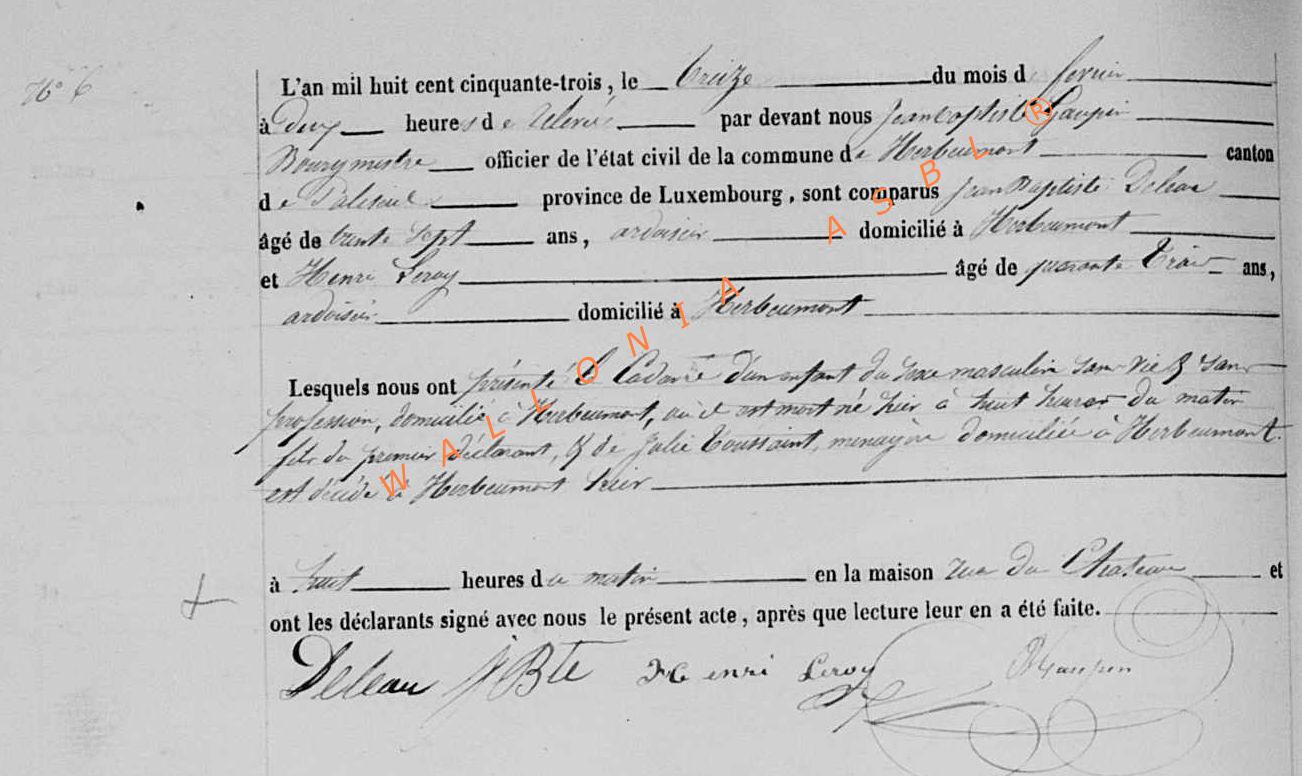 N° 6
L'an mil huit cent cinquante-trois, le treize du mois de fevrier
à deux heures de relevée par devant nous Jean Baptiste Gaupin
Bourgmestre officier de l'état civil de la commune de Herbeumont canton
de Paliseul province de Luxembourg, sont comparus Jean Baptiste Deleau
âgé de trente sept ans, ardoisier domicilié à Herbeumont
et Henri Leroy âgé de quarante trois ans,
ardoisier domicilié à Herbeumont
Lesquels nous ont présenté le Cadavre d'un enfant du sexe masculin sans vie & sans
profession, domicilié à Herbeumont, où il est mort né hier à huit heures du matin
fils du premier déclarant, & de Julie Toussaint, menagère domiciliée à Herbeumont.
est décédé à Herbeumont hier
à huit heures du matin en la maison rue du Chateau et
ont les déclarants signé avec nous le présent acte, après que lecture leur en a été faite.
Deleau JBte Henri Leroy
WALLONIA ASBL ®